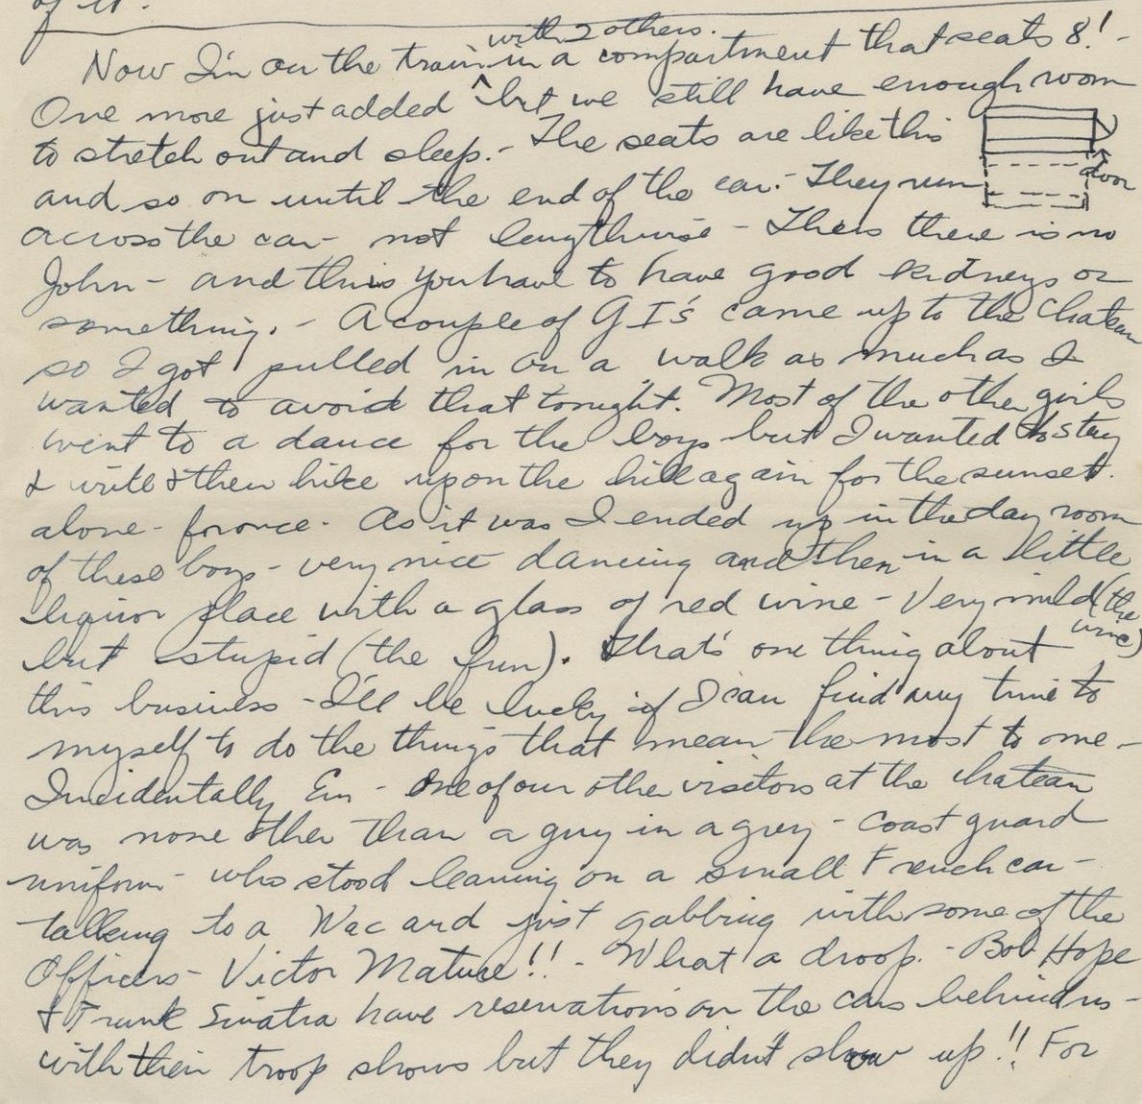 of it.
with 2 others.
Now I'm on the train ^ in a compartment that seats 8! -
One more just added but we still have enough room
to stretch out and sleep. - The seats are like this
door
and so on until the end of the car. - They run
across the car - not lengthwise - Thus there is no
John - and thus you have to have good kidneys or
something. - A couple of GI's came up to the Chateau
so I got pulled in on a walk as much as I
wanted to avoid that tonight. Most of the other girls
went to a dance for the boys but I wanted to stay
& write & then hike up on the hill again for the sunset.
alone - for once. As it was I ended up in the day room
of these boys - very nice dancing and then in a little
liquor place with a glass of red wine - Very mild (the
wine)
but stupid (the fun). That's one thing about
this business - I'll be lucky if I can find any time to
myself to do the things that mean the most to me -
Incidentally Em - One of our other visitors at the chateau
was none other than a guy in a grey - coast guard
uniform - who stood leaning on a small French car -
talking to a Wac and just gabbing with some of the
Officers - Victor Mature!! - What a droop. - Bob Hope
& Frank Sinatra have reservations on the cars behind us -
with their troop shows but they didn't show up!! For